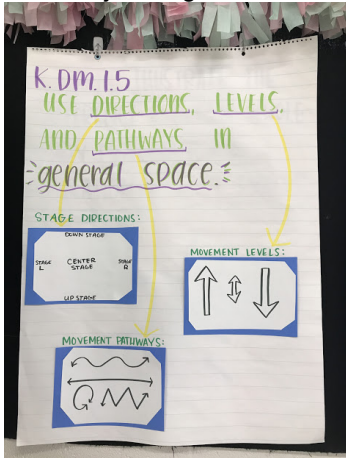 K.DM.1.5
USE DIRECTIONS, LEVELS,
AND PATHWAYS IN
general space.
STAGE DIRECTIONS:
DOWN STAGE
STAGE L CENTER STAGE STAGE R
UP STAGE
MOVEMENT LEVELS:
MOVEMENT PATHWAYS: